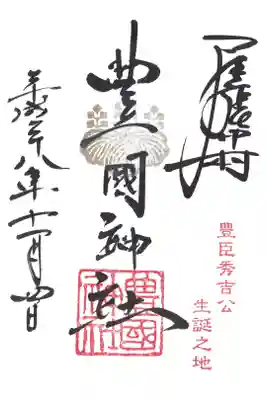 尾張中村
豊臣秀吉公
生誕之地
豊國神社
豊國神社
平成廿八年十一月四日